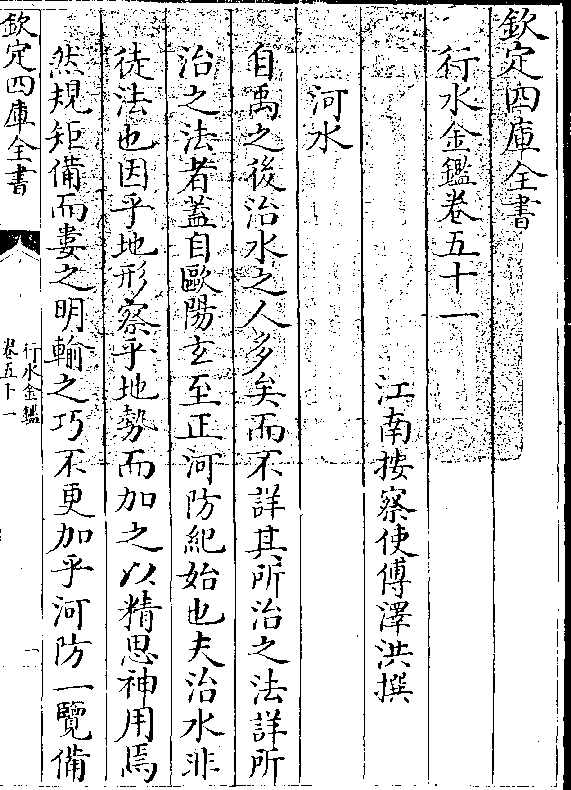 欽定四庫全書
行水金鑑卷五十一
江南按察使傅澤洪撰
河水
自禹之後治水之人多矣而不詳其所治之法詳所
治之法者蓋自歐陽玄至正河防紀始也夫治水非
徒法也因乎地形察乎地勢而加之以精思神用焉
然規矩備而婁之明輸之巧不更加乎河防一覽備
欽定四庫全書
行水金鑑
卷五十一
一